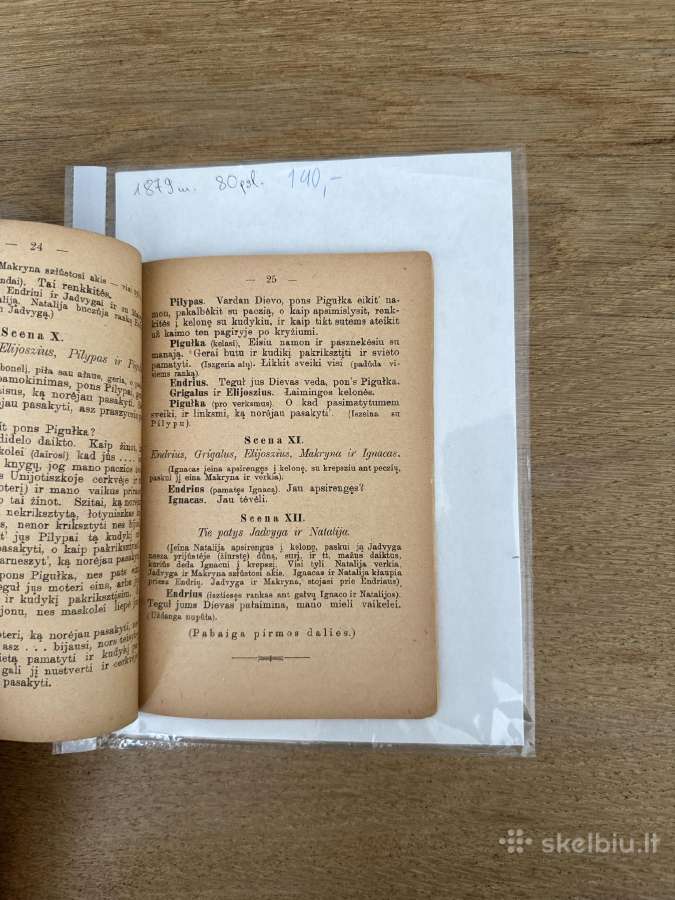 1879 m. 80 psl. 190,-
— 24 —
Makryna szlůstosi akis — visi
Tai renkkitės.
Endriui ir Jadvygai ir su Ma-
Natalija bucząja ranką
Jadvygą.)
Scena X.
Elijoszius, Pilypas ir
bonelį, piła sau ałaus, geria, o
pamokinimas, pons Pilypai,
ką norėjau pasakyti, o
norėjau pasakyti, asz praszyczi
it pons Pigułka?
didelo daikto. Kaip žinot,
maskolei (dairosi) kad jůs
knygų, jog mano paczios
Unijotiszkoje cerkvėje ir
moterį) ir mano vaikus prima
tai žinot. Szitai, ką norė
nekriksztytą, łotyniszkai
nenor kriksztyti nes bijau
jus Pilypai tą kudykį
pasakyti, o kaip pakriksztyt
parneszyt', ką norėjau pasakyti.
pons Pigułka, nes pats
Teguł jus moteri eina, arba
ir kudykį pakriksztijim.
nes maskolei liepė
moteri, ką norėjau pasakyti,
asz . . . bijausi, nors
pamatyti ir kudykį
gali jį nustverti ir cerkvė
pasakyti.
— 25 —
Pilypas. Vardan Dievo, pons Pigułka eikit' na-
mon, pakalbėkit su paczią, o kaip apsimislysit, renk-
kitės į kelonę su kudykiu, ir kaip tikt sutems ateikit
už kaimo ten pagiryje po kryžiumi.
Pigułka (kelasi). Eisiu namon ir pasznekėsiu su
manąją. Gerai butu ir kudikį pakriksztįti ir svieto
pamatyti. (Iszgeria alų). Likkit sveiki visi (padůda vi-
siems ranką).
Endrius. Teguł jus Dievas veda, pon's Pigułka.
Grigalus ir Elijoszius. Łaimingos kelonės.
Pigułka (pro verksmus). O kad pasimatytumem
sveiki, ir linksmi, ką norėjau pasakyti'. (Iszeina su
Pilypu).
Scena XI.
Endrius, Grigalus, Elijoszius, Makryna ir Ignacas.
(Ignacas įeina apsirengęs į kelonę, su krepsziu ant peczių,
paskui jį eina Makryna ir verkia).
Endrius (pamatęs Ignacą). Jau apsirengęs?
Ignacas. Jau tėvėli.
Scena XII.
Tie patys Jadvyga ir Natalija.
(Įeina Natalija apsirengus į kelonę, paskui ją Jadvyga
nesza prijůstėje (žiurstę) důną, surį, ir tt., mažus daiktus,
kuriůs deda Ignacui į krepszi. Visi tyli Natalija verkia,
Jadvyga ir Makryna szlůstosi akis. Ignacas ir Natalija klaupia
priesz Endrių. Jadvyga ir Makryna, stojasi prie Endriaus),
Endrius (isztiesęs rankas ant galvų Ignaco ir Natalijos).
Teguł jums Dievas pałaimina, mano mieli vaikelei.
(Uždanga nupůła).
(Pabaiga pirmos dalies.)
skelbiu.lt